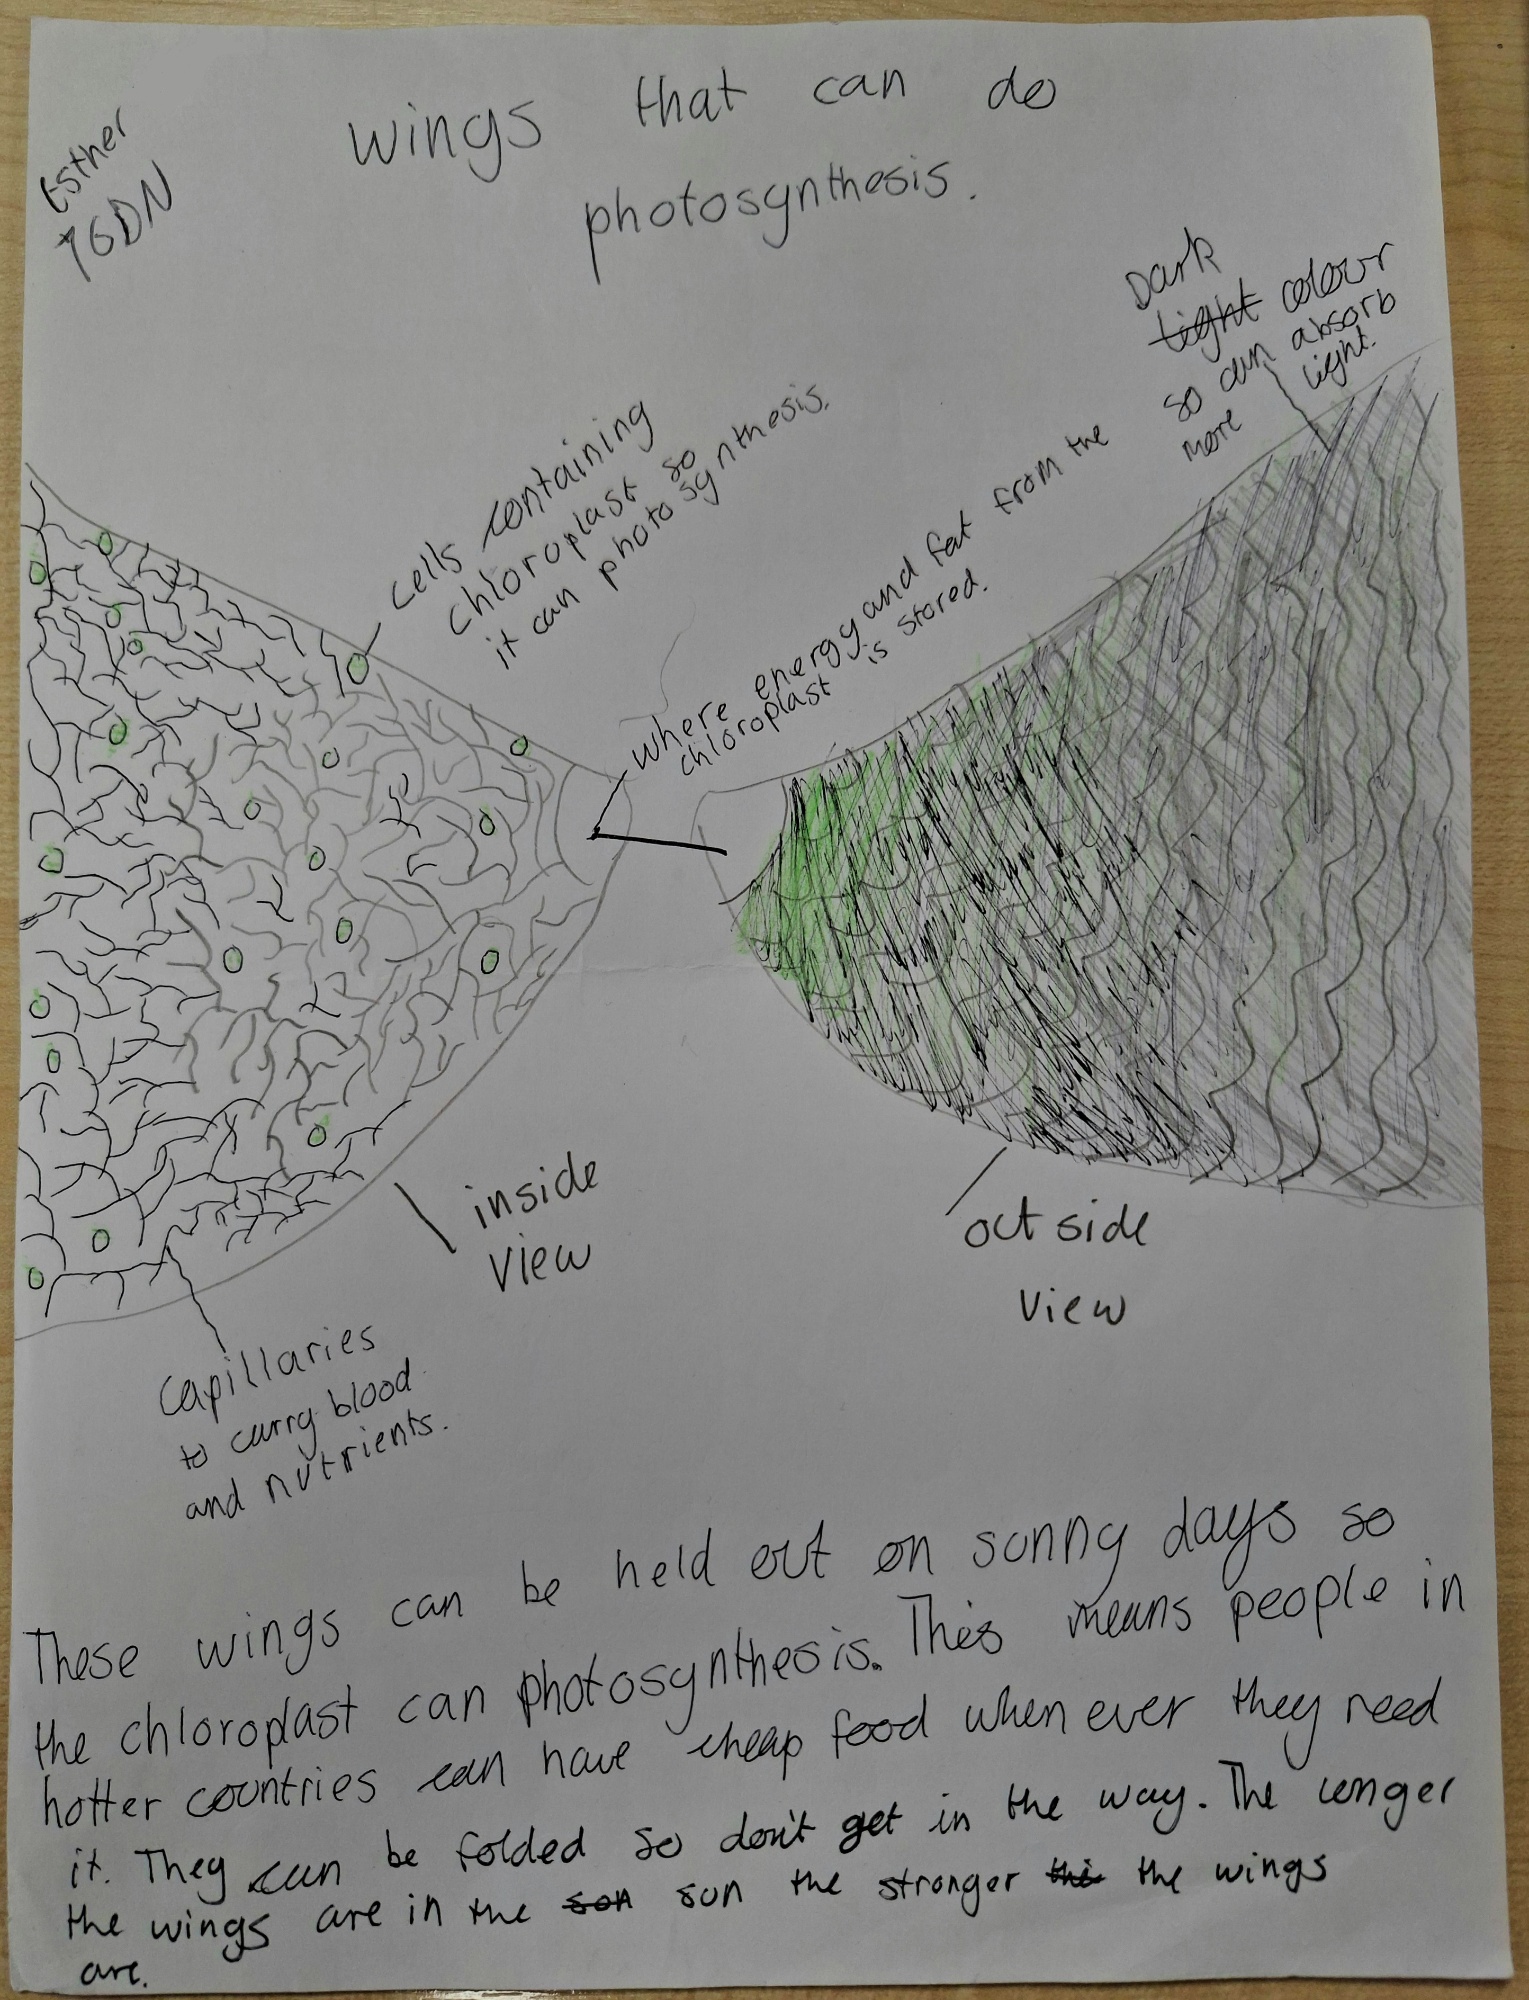 wings that can do
photosynthesis.
Esther
7GDN
Dark
light colour
so can absorb
more light.
cells containing
chloroplast so
it can photosynthesis.
where energy and fat from the
chloroplast is stored.
inside
view
outside
view
capillaries
to carry blood
and nutrients.
These wings can be held out on sunny days so
the chloroplast can photosynthesis. This means people in
hotter countries can have cheap food when ever they need
it. They can be folded so don't get in the way. The longer
the wings are in the son sun the stronger the the wings
are.